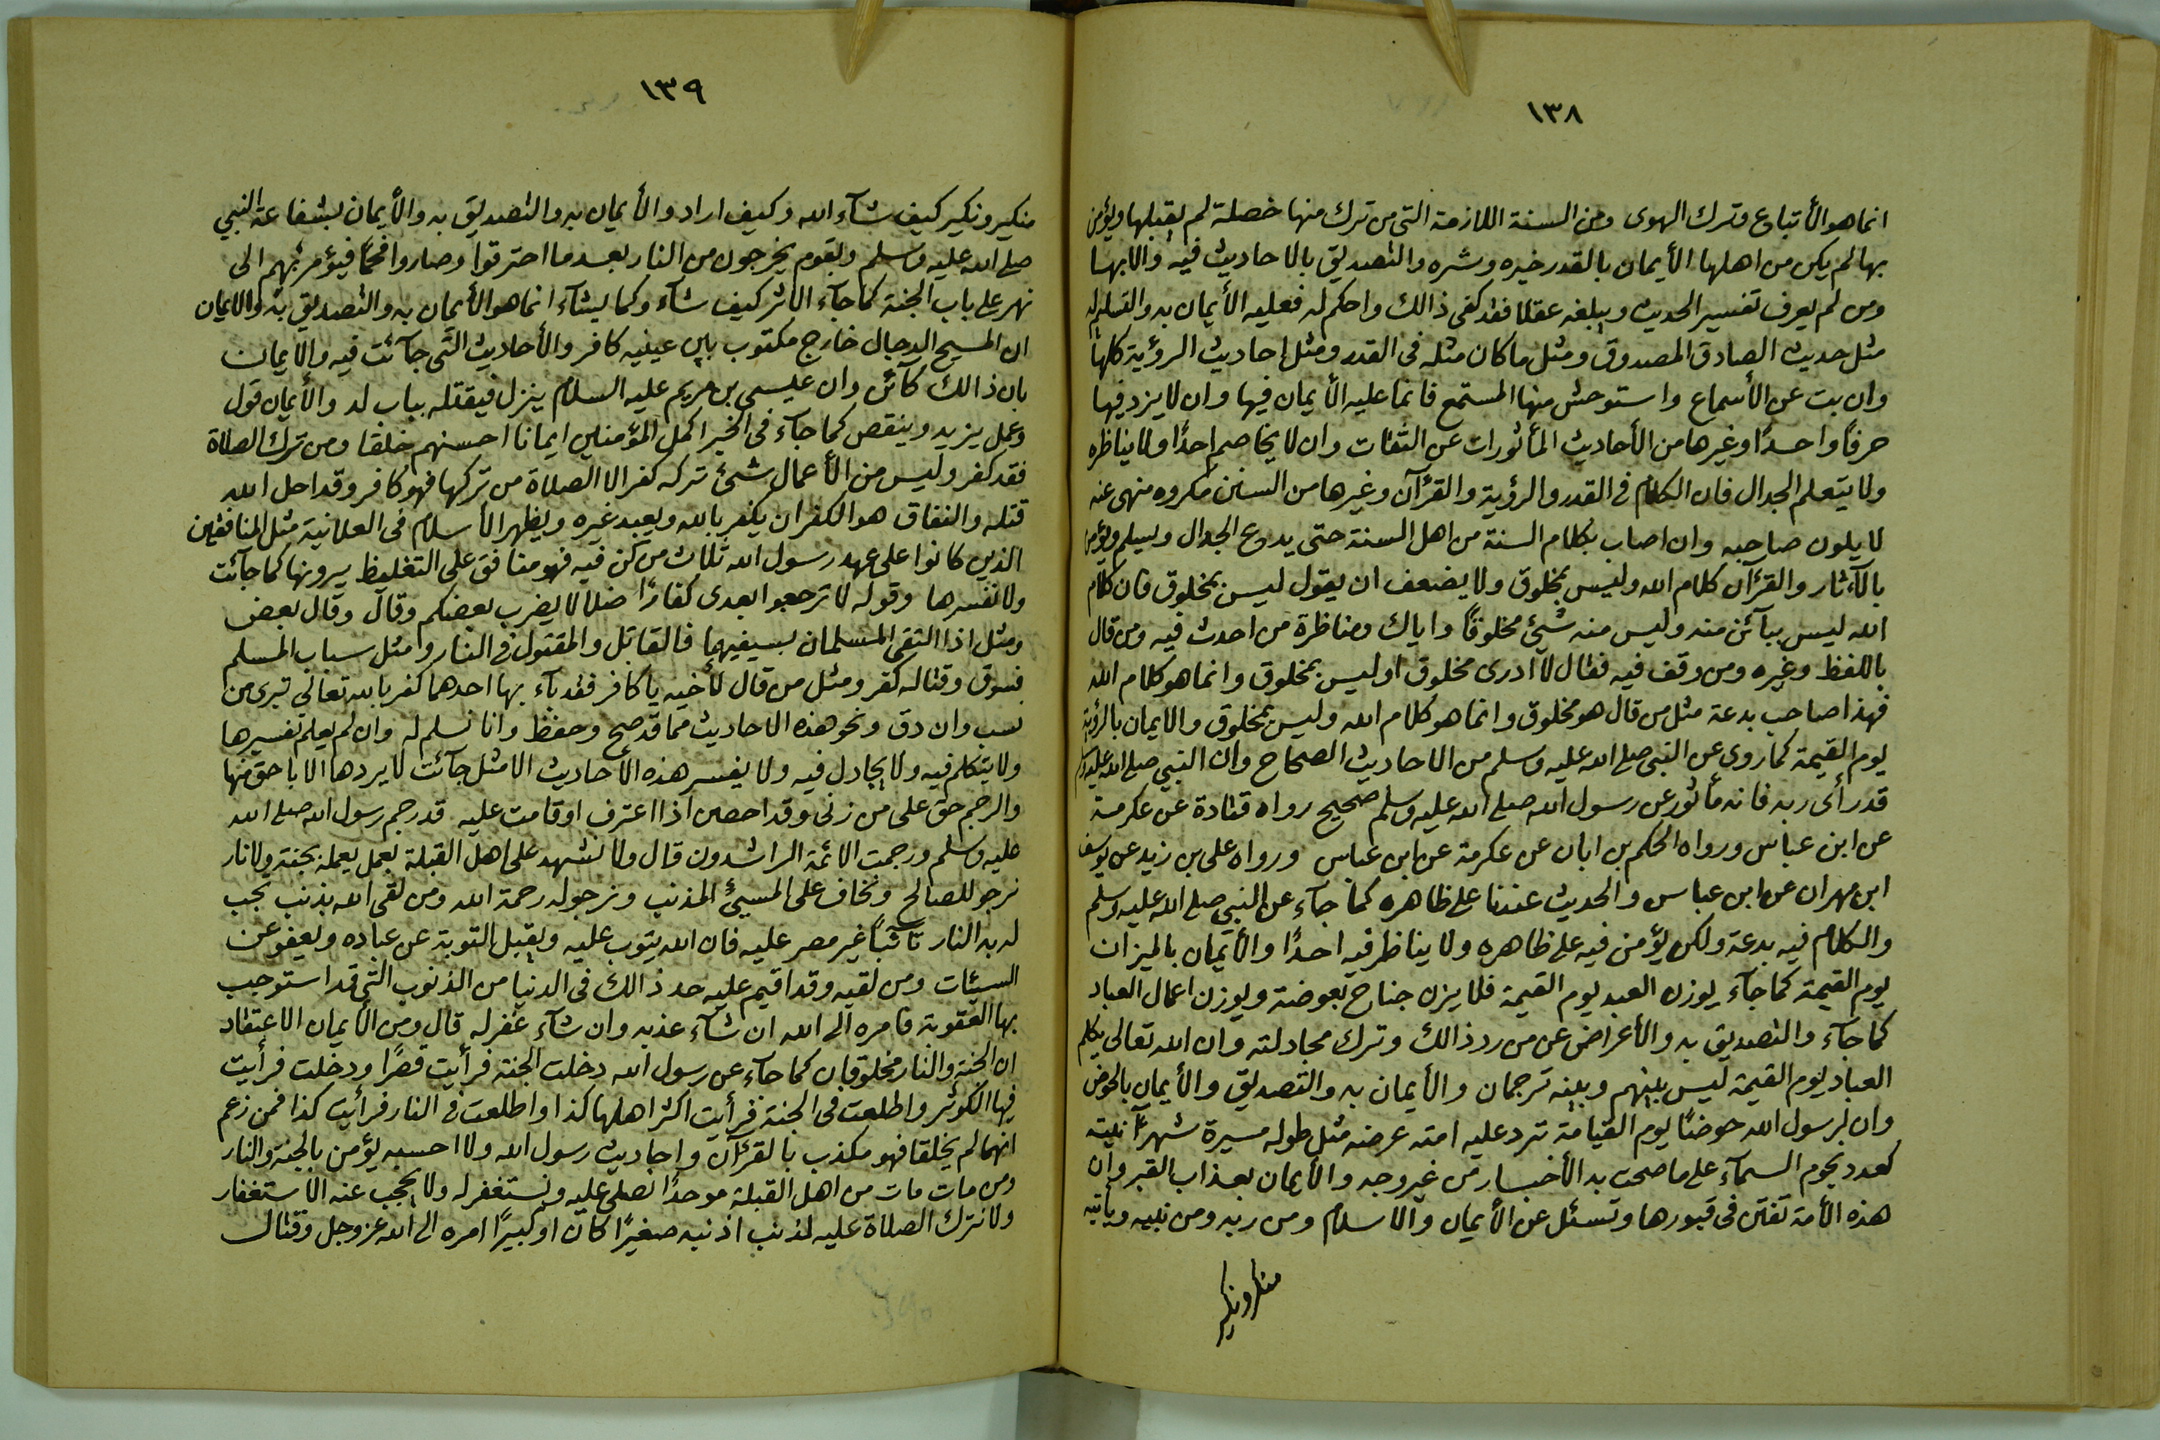 ١٣٨
انما هو الأتباع وترك الهوى ومن السنة اللازمة التى من ترك منها خصلة لم يقبلها ويؤمن
بها لم يكن من اهلها الأيمان بالقدر خيره وشره والتصديق بالاحاديث فيه والأبها
ومن لم يعرف تفسير الحديث ويبلغه عقله فقد كفى ذالك واحكم له فعليه الأيمان به والتسليم له
مثل حديث الصادق المصدوق ومثل ما كان مثله فى القدر ومثل احاديث الرؤية كلها
وان بت عن الأسماع واستوحش منها المستمع فانما عليه الأيمان فيها وان لا يزد فيها
حرفاً واحدًا وغيرها من الأحاديث المأثورات عن الثقات وان لا يخاصم احدًا ولا يناظره
ولا يتعلم الجدال فان الكلام فى القدر والرؤية والقرآن وغيرها من السنن مكروه منهى عنه
لا يلون صاحبه وان اصاب بكلام السنة من اهل السنة حتى يدع الجدال ويسلم ويؤمن
بالآثار والقرءان كلام الله وليس بمخلوق ولا يضعف ان يقول ليس بمخلوق فان كلام
الله ليس ببآئن منه وليس منه شيئ مخلوقاً واياك ومناظرة من احدث فيه ومن قال
باللفظ وغيره ومن وقف فيه فقال لا ادرى مخلوق او ليس بمخلوق وانما هو كلام الله
فهذا صاحب بدعة مثل من قال هو مخلوق وانما هو كلام الله وليس بمخلوق والايمان بالرؤية
يوم القيمة كما روى عن النبى صلى الله عليه وسلم من الاحاديث الصحاح وان النبي صلى الله عليه وسلم
قد رأى ربه فانه مأثور عن رسول الله صلى الله عليه وسلم صحيح رواه قتادة عن عكرمة
عن ابن عباس ورواه الحكم بن ابان عن عكرمة عن ابن عباس ورواه على بن زيد عن يوسف
ابن مهران عن ابن عباس والحديث عندنا على ظاهره كما جآء عن النبي صلى الله عليه وسلم
والكلام فيه بدعة ولكن يؤمن فيه على ظاهره ولا يناظر فيه احدًا والأيمان بالميزان
يوم القيمة كما جآء يوزن العبد يوم القيمة فلا يزن جناح بعوضة ويوزن اعمال العباد
كما جآء والتصديق به والأعراض عن من رد ذالك وترك مجادلته وان الله تعالى يكلم
العباد يوم القيمة ليس بينهم وبينه ترجمان والأيمان به والتصديق والأيمان بالحوض
وان لرسول الله حوضًا يوم القيامة ترد عليه امته عرضه مثل طوله مسيرة شهر آنيته
كعدد نجوم السمآء على ما صحت به الأخبار من غير وجه والأيمان بعذاب القبر وان
هذه الأمة تفتن فى قبورها وتسئل عن الأيمان والاسلام ومن ربه ومن نبيه ويأتيه
منكر ونكير
١٣٩
منكير ونكير كيف شآء الله وكيف اراد والأيمان به والتصديق به والأيمان بشفاعة النبي
صلى الله عليه وسلم وبقوم يخرجون من النار بعد ما احترقوا وصاروا فحمًا فيؤمر بهم الى
نهر على باب الجنة كما جآء الاثر كيف شآء وكما يشآء انما هو الأيمان به والتصديق به والايمان
ان المسيح الدجال خارج مكتوب بين عينيه كافر والأحاديث التى جآئت فيه والأيمان
بان ذالك كآئن وان عيسى بن مريم عليه السلام ينزل فيقتله بباب لد والأيمان قول
وعمل يزيد وينقص كما جآء فى الخبر اكمل المؤمنين ايمانا احسنهم خلقا ومن ترك الصلاة
فقد كفر وليس من الأعمال شئ تركه كفر الا الصلاة من تركها فهو كافر وقد احل الله
قتله والنفاق هو الكفر ان يكفر بالله ويعبد غيره ويظهر الأسلام فى العلانية مثل المنافقين
الذين كانوا على عهد رسول الله ثلاث من كن فيه فهو منافق على التغليظ يرونها كما جآئت
ولا نفسرها وقوله لا ترجعوا بعدى كفارًا ضلالا يضرب بعضكم وقال وقال بعض
ومثل اذا التقى المسلمان بسيفيهما فالقاتل والمقتول فى النار ومثل سباب المسلم
فسوق وقتاله كفر ومثل من قال لأخيه يا كافر فقد بآء بها احدهما كفر بالله تعالى تبرى من
نسب وان دق ونحو هذه الاحاديث مما قد صح وحفظ وانا نسلم له وان لم يعلم تفسيرها
ولا يتكلم فيه ولا يجادل فيه ولا يفسر هذه الأحاديث الا مثل جآئت لا يردها الا باحق منها
والرجم حق على من زنى وقد احصن اذا اعترف او قامت عليه قد رجم رسول الله صلى الله
عليه وسلم ورجمت الائمة الراشدون قال ولا نشهد على اهل القبلة بعمل يعمله بجنة ولا نار
نرجو للصالح ونخاف على المسيئ المذنب ونرجو له رحمة الله ومن لقى الله بذنب يجب
له به النار تآئباً غير مصر عليه فان الله يتوب عليه ويقبل التوبة عن عباده ويعفو عن
السيئات ومن لقيه وقد اقيم عليه حد ذالك فى الدنيا من الذنوب التى قد استوجب
بها العقوبة فامره الى الله ان شآء عذبه وان شآء غفر له قال ومن الأيمان الاعتقاد
ان الجنة والنار مخلوقان كما جآء عن رسول الله دخلت الجنة فرأيت قصرًا ودخلت فرأيت
فيها الكوثر واطلعت فى الجنة فرأيت اكثر اهلها كذا واطلعت فى النار فرأيت كذا فمن زعم
انهما لم يخلقا فهو مكذب بالقرءان واحاديث رسول الله ولا احسبه يؤمن بالجنة والنار
ومن مات مات من اهل القبلة موحدًا نصلى عليه ونستغفر له ولا يحجب عنه الاستغفار
ولا نترك الصلاة عليه لذنب اذنبه صغيرًا كان او كبيرًا امره الى الله عز وجل وقتال